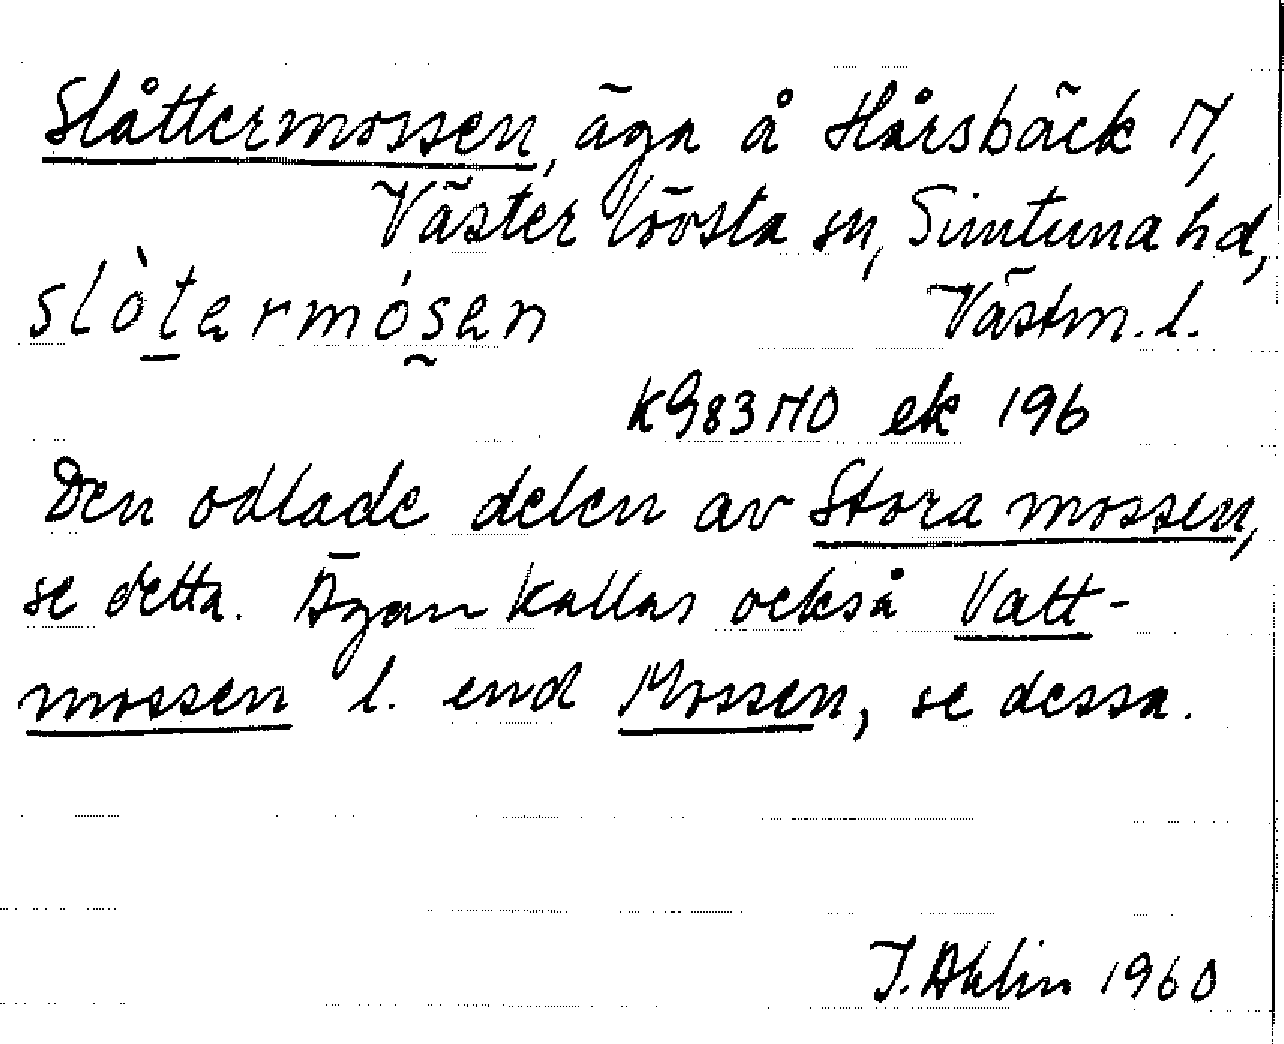 Slåttermossen, äga å Hårsbäck M,
Väster Lövsta sn, Simtuna hd,
slòtermósen Västm. l.
KG83MO ek 196
Den odlade delen av Stora mossen,
se detta. Ägan kallas också Vatt-
mossen l. end Mossen, se dessa.
J. Ahlin 1960